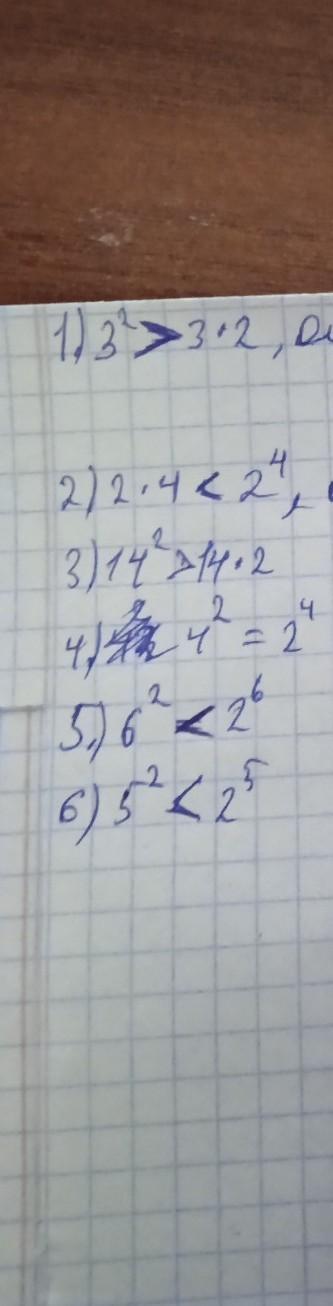 1) 3² > 3·2,
2) 2·4 < 2⁴,
3) 14² > 14·2
4) 4² = 2⁴
5.) 6² < 2⁶
6) 5² < 2⁵